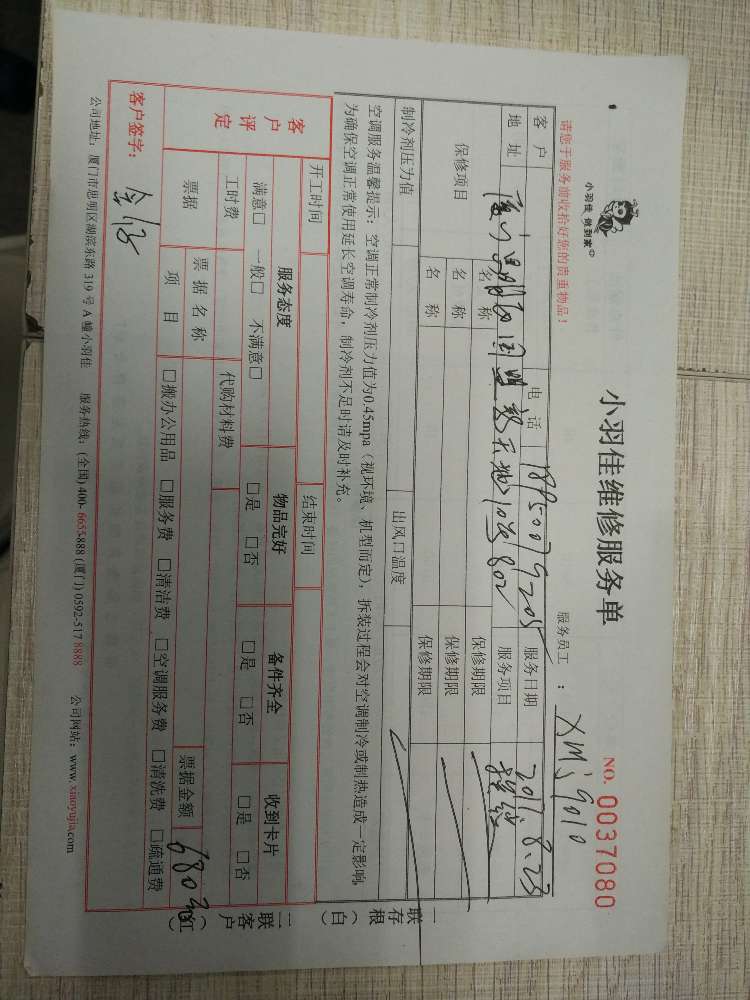 小羽佳 做到家
小羽佳维修服务单
NO. 0037080
请您于服务前收拾好您的贵重物品！
服务员工 ： XM59010
客户 电话 18950079205 服务日期 2017.8.23
地址 10号802 服务项目
保修项目 名称 保修期限
名称 保修期限
名称 保修期限
制冷剂压力值 出风口温度
空调服务温馨提示：空调正常制冷剂压力值为0.45mpa（视环境、机型而定），拆装过程会对空调制冷或制热造成一定影响，
为确保空调正常使用延长空调寿命，制冷剂不足时请及时补充。
开工时间 结束时间
客户评定 服务态度 物品完好 备件齐全 收到卡片
满意□ 一般□ 不满意□ □是 □否 □是 □否 □是 □否
工时费 代购材料费
票据 票据名称 票据金额 680元
项目 □搬办公用品 □服务费 □清洁费 □空调服务费 □清洗费 □疏通费
客户签字：
公司地址：厦门市思明区湖滨东路 319 号 A 幢小羽佳 服务热线：(全国) 400-6655-888 (厦门) 0592-517 8888 公司网站：www.xiaoyujia.com
一联存根（白）
二联客户（红）